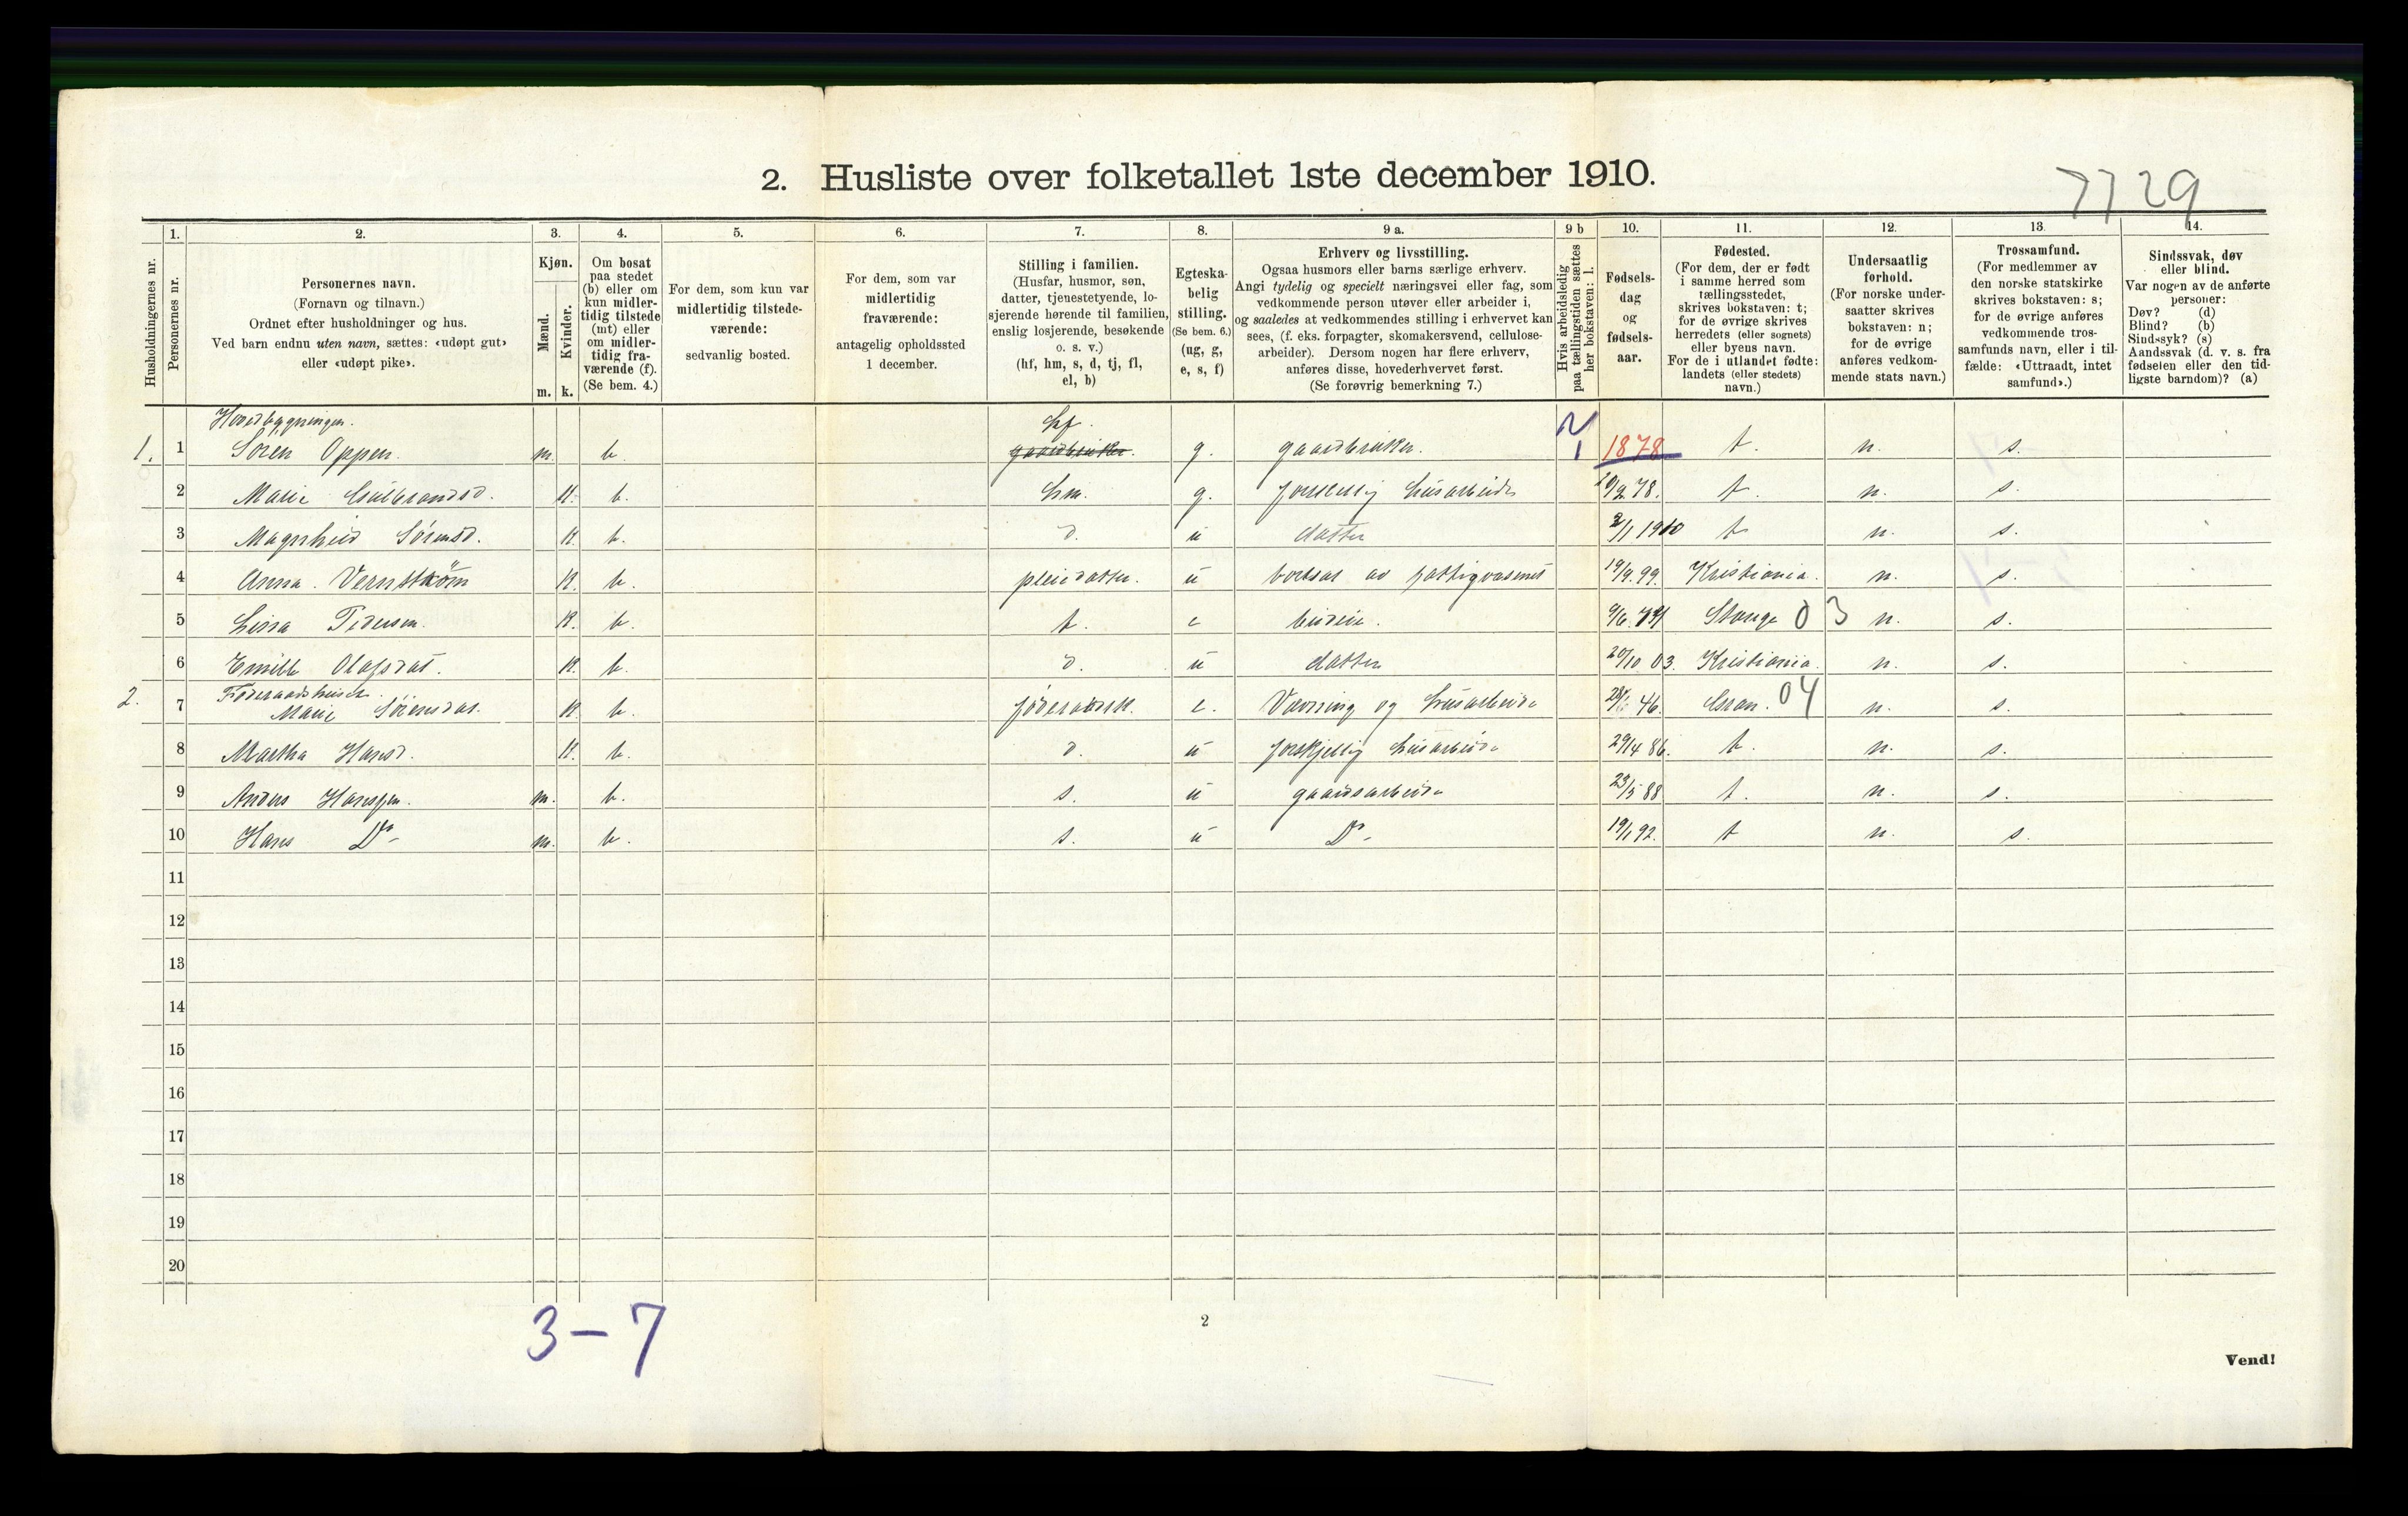 2. Husliste over folketallet 1ste december 1910.
7729
Husholdningernes nr.
1. Personernes nr.
2. Personernes navn.
(Fornavn og tilnavn.)
Ordnet efter husholdninger og hus.
Ved barn endnu uten navn, sættes: «udøpt gut»
eller «udøpt pike».
3. Kjøn.
Mænd. m.
Kvinder. k.
4. Om bosat
paa stedet
(b) eller om
kun midler-
tidig tilstede
(mt) eller
om midler-
tidig fra-
værende (f).
(Se bem. 4.)
5. For dem, som kun var
midlertidig tilstede-
værende:
sedvanlig bosted.
6. For dem, som var
midlertidig
fraværende:
antagelig opholdssted
1 december.
7. Stilling i familien.
(Husfar, husmor, søn,
datter, tjenestetyende, lo-
sjerende hørende til familien,
enslig losjerende, besøkende
o. s. v.)
(hf, hm, s, d, tj, fl,
el, b)
8. Egteska-
belig
stilling.
(Se bem. 6.)
(ug, g,
e, s, f)
9 a. Erhverv og livsstilling.
Ogsaa husmors eller barns særlige erhverv.
Angi tydelig og specielt næringsvei eller fag, som
vedkommende person utøver eller arbeider i,
og saaledes at vedkommendes stilling i erhvervet kan
sees, (f. eks. forpagter, skomakersvend, cellulose-
arbeider). Dersom nogen har flere erhverv,
anføres disse, hovederhvervet først.
(Se forøvrig bemerkning 7.)
9 b Hvis arbeidsledig
paa tællingstiden sættes
her bokstaven: l.
10. Fødsels-
dag
og
fødsels-
aar.
11. Fødested.
(For dem, der er født
i samme herred som
tællingsstedet,
skrives bokstaven: t;
for de øvrige skrives
herredets (eller sognets)
eller byens navn.
For de i utlandet fødte:
landets (eller stedets)
navn.)
12. Undersaatlig
forhold.
(For norske under-
saatter skrives
bokstaven: n;
for de øvrige
anføres vedkom-
mende stats navn.)
13. Trossamfund.
(For medlemmer av
den norske statskirke
skrives bokstaven: s;
for de øvrige anføres
vedkommende tros-
samfunds navn, eller i til-
fælde: «Uttraadt, intet
samfund».)
14. Sindssvak, døv
eller blind.
Var nogen av de anførte
personer:
Døv? (d)
Blind? (b)
Sindssyk? (s)
Aandssvak (d. v. s. fra
fødselen eller den tid-
ligste barndom)? (a)
Hovedbygningen.
1. 1 Sören Oppen. m. b. hf. gaardbruker. g. gaardbruker. 1 1878 t. n. s.
2 Marie Gulbrandsd. k. b. hm. g. husarbeide 10/2 78. t. n. s.
3 Magnhild Sörensd. k. b. d. u datter 2/1 1910 t n. s.
4 Anna. Vernström k. b. pleiedatter. u bortsat av fattigvæsenet 19/9. 99. Kristiania. n. s.
5 Pedersen. k. b. t. e budeie. Stange 03 n. s.
6 Olafsdat. k. b. d. u datter 20/10 03. Kristiania. n. s.
Föderaadshuset.
2. 7 Marie Sörensdat. k. b. e. Vævning og husarbeide 46. Gran. 04 n. s.
8 Martha Hansd. k. b. d. u forskjellig husarbeide 29/4 86. t. n. s.
9 Anders Hansen. m. b. s. u gaardsarbeide 23/5 88 t. n. s.
10 Hans Do- m. b. s. u Do- 19/1 92. t n. s.
11
12
13
14
15
16
17
18
19
20
3-7
2
Vend!